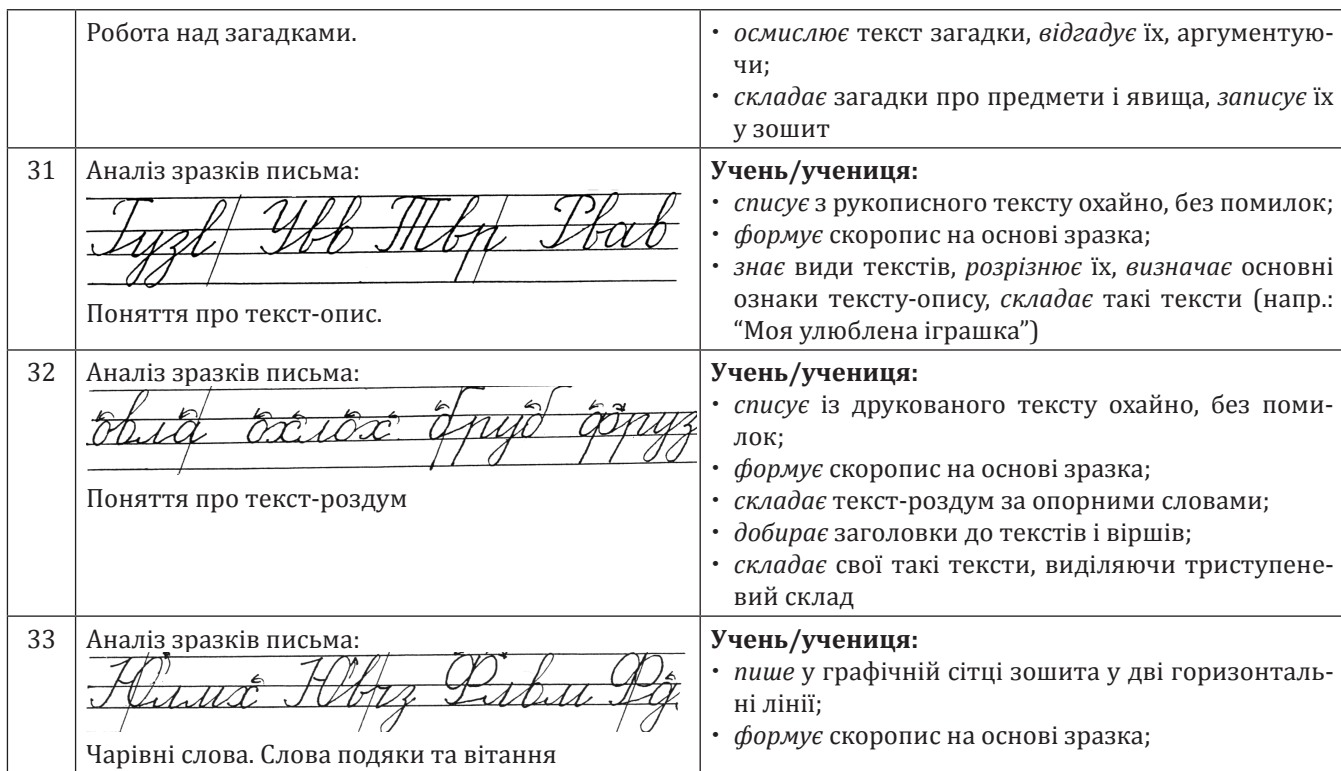 Робота над загадками.
• осмислює текст загадки, відгадує їх, аргументую-
чи;
• складає загадки про предмети і явища, записує їх
у зошит
31
Аналіз зразків письма:
Поняття про текст-опис.
Учень/учениця:
• списує з рукописного тексту охайно, без помилок;
• формує скоропис на основі зразка;
• знає види текстів, розрізнює їх, визначає основні
ознаки тексту-опису, складає такі тексти (напр.:
“Моя улюблена іграшка”)
32
Аналіз зразків письма:
овла охлох бруб фруз
Поняття про текст-роздум
Учень/учениця:
• списує із друкованого тексту охайно, без поми-
лок;
• формує скоропис на основі зразка;
• складає текст-роздум за опорними словами;
• добирає заголовки до текстів і віршів;
• складає свої такі тексти, виділяючи триступене-
вий склад
33
Аналіз зразків письма:
Чарівні слова. Слова подяки та вітання
Учень/учениця:
• пише у графічній сітці зошита у дві горизонталь-
ні лінії;
• формує скоропис на основі зразка;